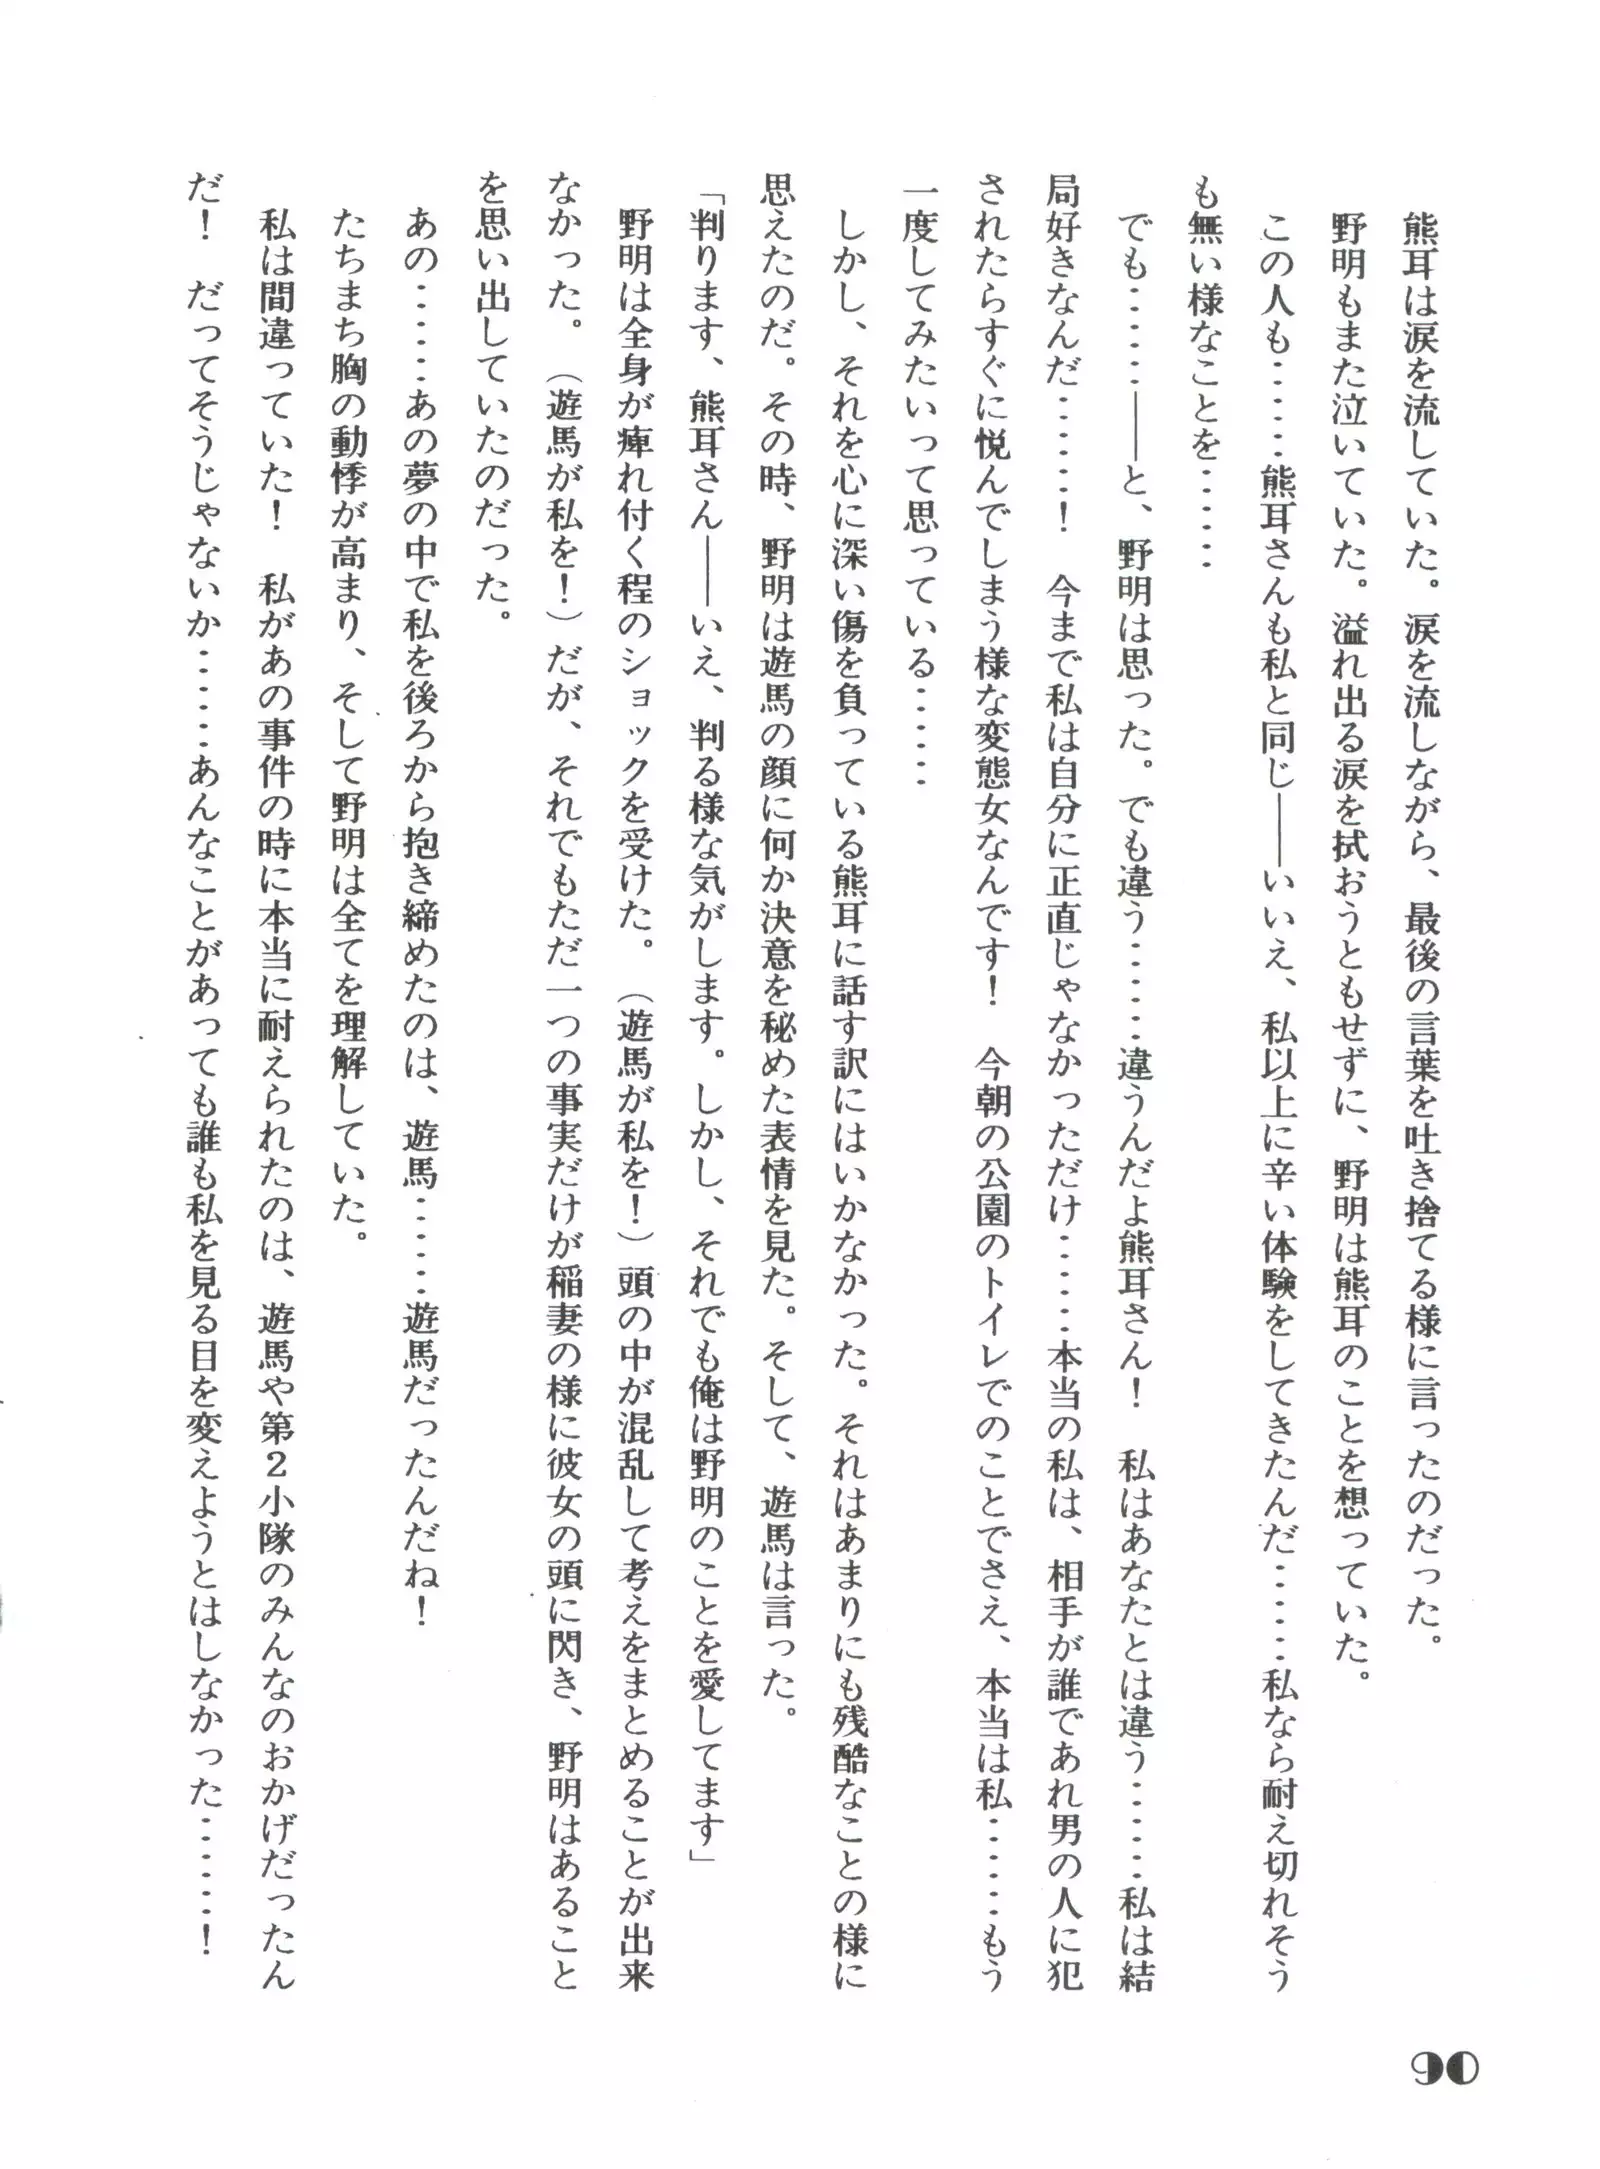 熊耳は涙を流していた。涙を流しながら、最後の言葉を吐き捨てる様に言ったのだった。
野明もまた泣いていた。溢れ出る涙を拭おうともせずに、野明は熊耳のことを想っていた。
この人も……熊耳さんも私と同じ――いいえ、私以上に辛い体験をしてきたんだ……私なら耐え切れそう
も無い様なことを……
でも……――と、野明は思った。でも違う……違うんだよ熊耳さん！　私はあなたとは違う……私は結
局好きなんだ……！　今まで私は自分に正直じゃなかっただけ……本当の私は、相手が誰であれ男の人に犯
されたらすぐに悦んでしまう様な変態女なんです！　今朝の公園のトイレでのことでさえ、本当は私……もう
一度してみたいって思っている……
しかし、それを心に深い傷を負っている熊耳に話す訳にはいかなかった。それはあまりにも残酷なことの様に
思えたのだ。その時、野明は遊馬の顔に何か決意を秘めた表情を見た。そして、遊馬は言った。
「判ります、熊耳さん――いえ、判る様な気がします。しかし、それでも俺は野明のことを愛してます」
野明は全身が痺れ付く程のショックを受けた。（遊馬が私を！）頭の中が混乱して考えをまとめることが出来
なかった。（遊馬が私を！）だが、それでもただ一つの事実だけが稲妻の様に彼女の頭に閃き、野明はあること
を思い出していたのだった。
あの……あの夢の中で私を後ろから抱き締めたのは、遊馬……遊馬だったんだね！
たちまち胸の動悸が高まり、そして野明は全てを理解していた。
私は間違っていた！　私があの事件の時に本当に耐えられたのは、遊馬や第２小隊のみんなのおかげだったん
だ！　だってそうじゃないか……あんなことがあっても誰も私を見る目を変えようとはしなかった……！
90